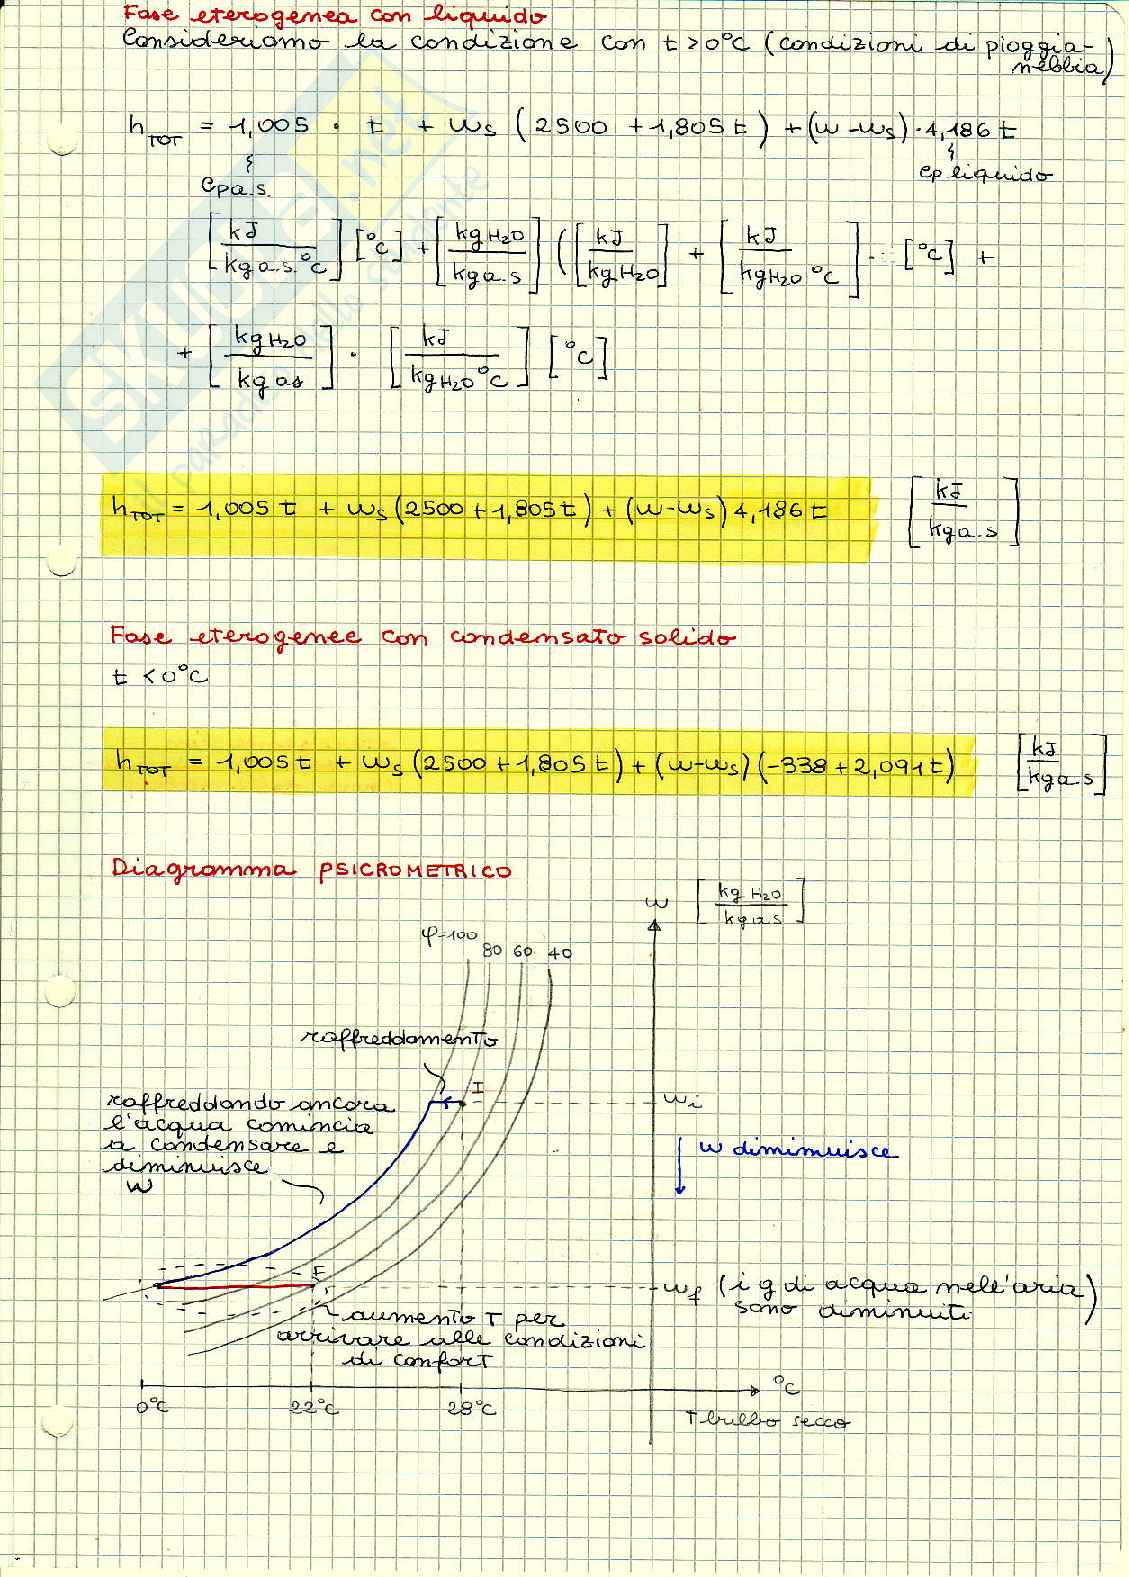 Fase eterogenea con liquido
Consideriamo la condizione con t>0°C (condizioni di pioggia-
nebbia)
h_TOT = 1,005 · t + ws (2500 + 1,805t) + (w-ws) · 4,186 t
cpa.s. cp liquido
[kJ/kg a.s. °C] [°C] + [kg H2O/kg a.s] ([kJ/kg H2O] + [kJ/kg H2O °C] · [°C] +
+ [kg H2O/kg as] · [kJ/kg H2O °C] [°C]
h_TOT = 1,005 t + ws (2500 + 1,805t) + (w-ws) 4,186 t [kJ/kg a.s]
Fase eterogenee con condensato solido
t <0°C
h_TOT = 1,005t + ws (2500 + 1,805t) + (w-ws) (-338 + 2,091t) [kJ/kg a.s]
Diagramma PSICROMETRICO
w [kg H2O/kg a.s]
φ=100 80 60 40
raffreddamento
I
raffreddando ancora
l'acqua comincia
a condensare e
diminuisce
w
wi
w diminuisce
F
wf (i g di acqua nell'aria)
sono diminuiti
aumento T per
arrivare alle condizioni
di confort
°C
0°C 22°C 28°C
T bulbo secco
SKUOLA.net
il paradiso dello studente